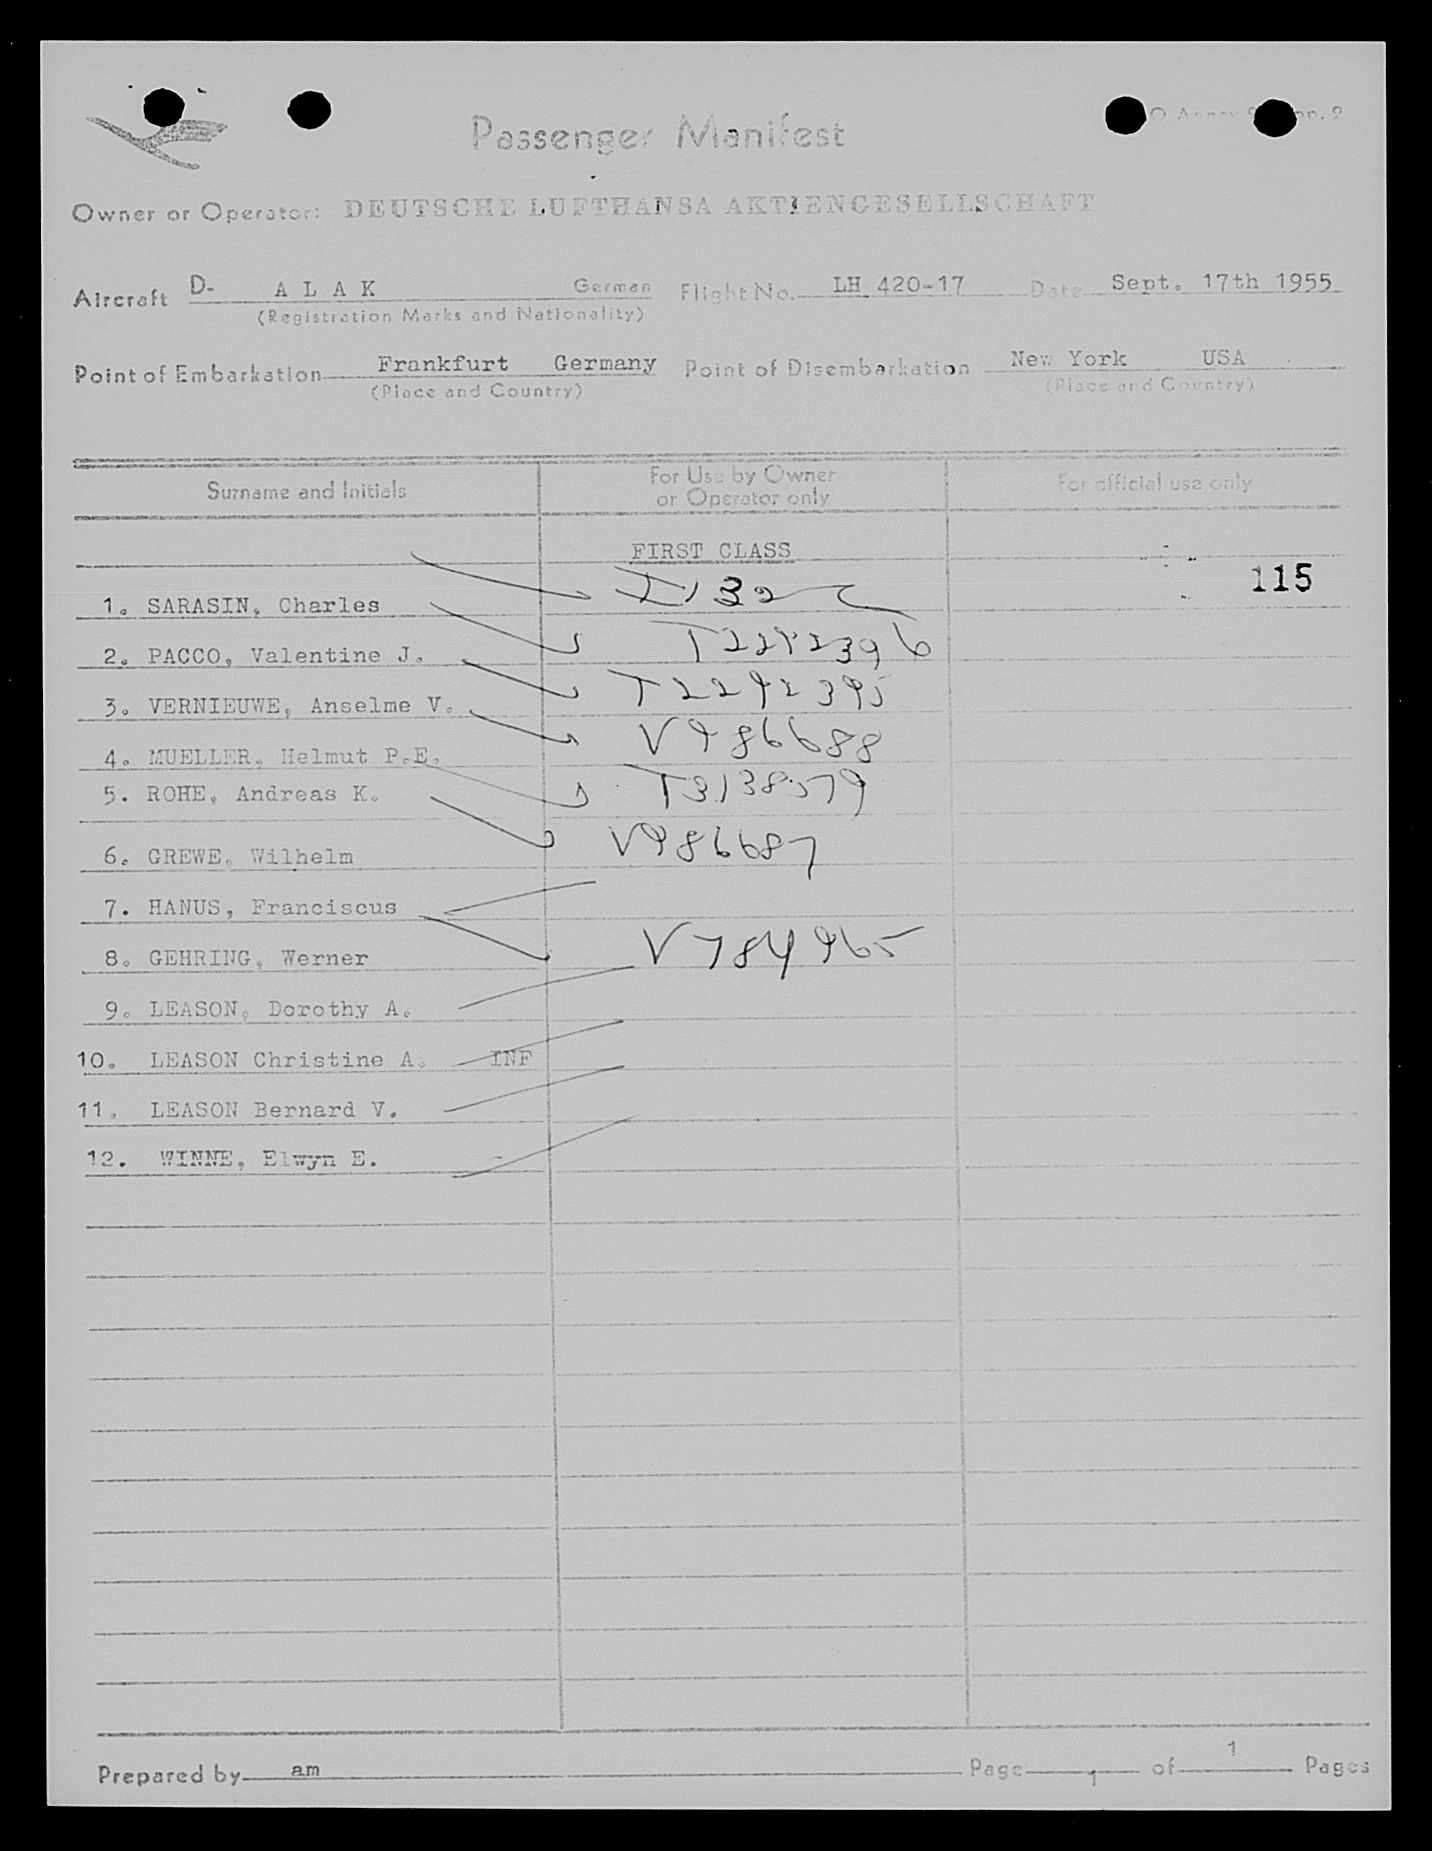 Passenger Manifest
Owner or Operator: DEUTSCHE LUFTHANSA AKTIENGESELLSCHAFT
Aircraft D- A L A K German Flight No. LH 420-17 Date Sept. 17th 1955
(Registration Marks and Nationality)
Point of Embarkation Frankfurt Germany Point of Disembarkation New York USA
(Place and Country) (Place and Country)
Surname and Initials For Use by Owner or Operator only For official use only
FIRST CLASS
115
1. SARASIN, Charles
2. PACCO, Valentine J. T2292396
3. VERNIEUWE, Anselme V. T2292395
4. MUELLER, Helmut P.E. V986688
5. ROHE, Andreas K. T3138579
6. GREWE, Wilhelm V986687
7. HANUS, Franciscus
8. GEHRING, Werner V784965
9. LEASON, Dorothy A.
10. LEASON Christine A. INF
11. LEASON Bernard V.
12. WINNE, Elwyn E.
Prepared by am Page 1 of 1 Pages